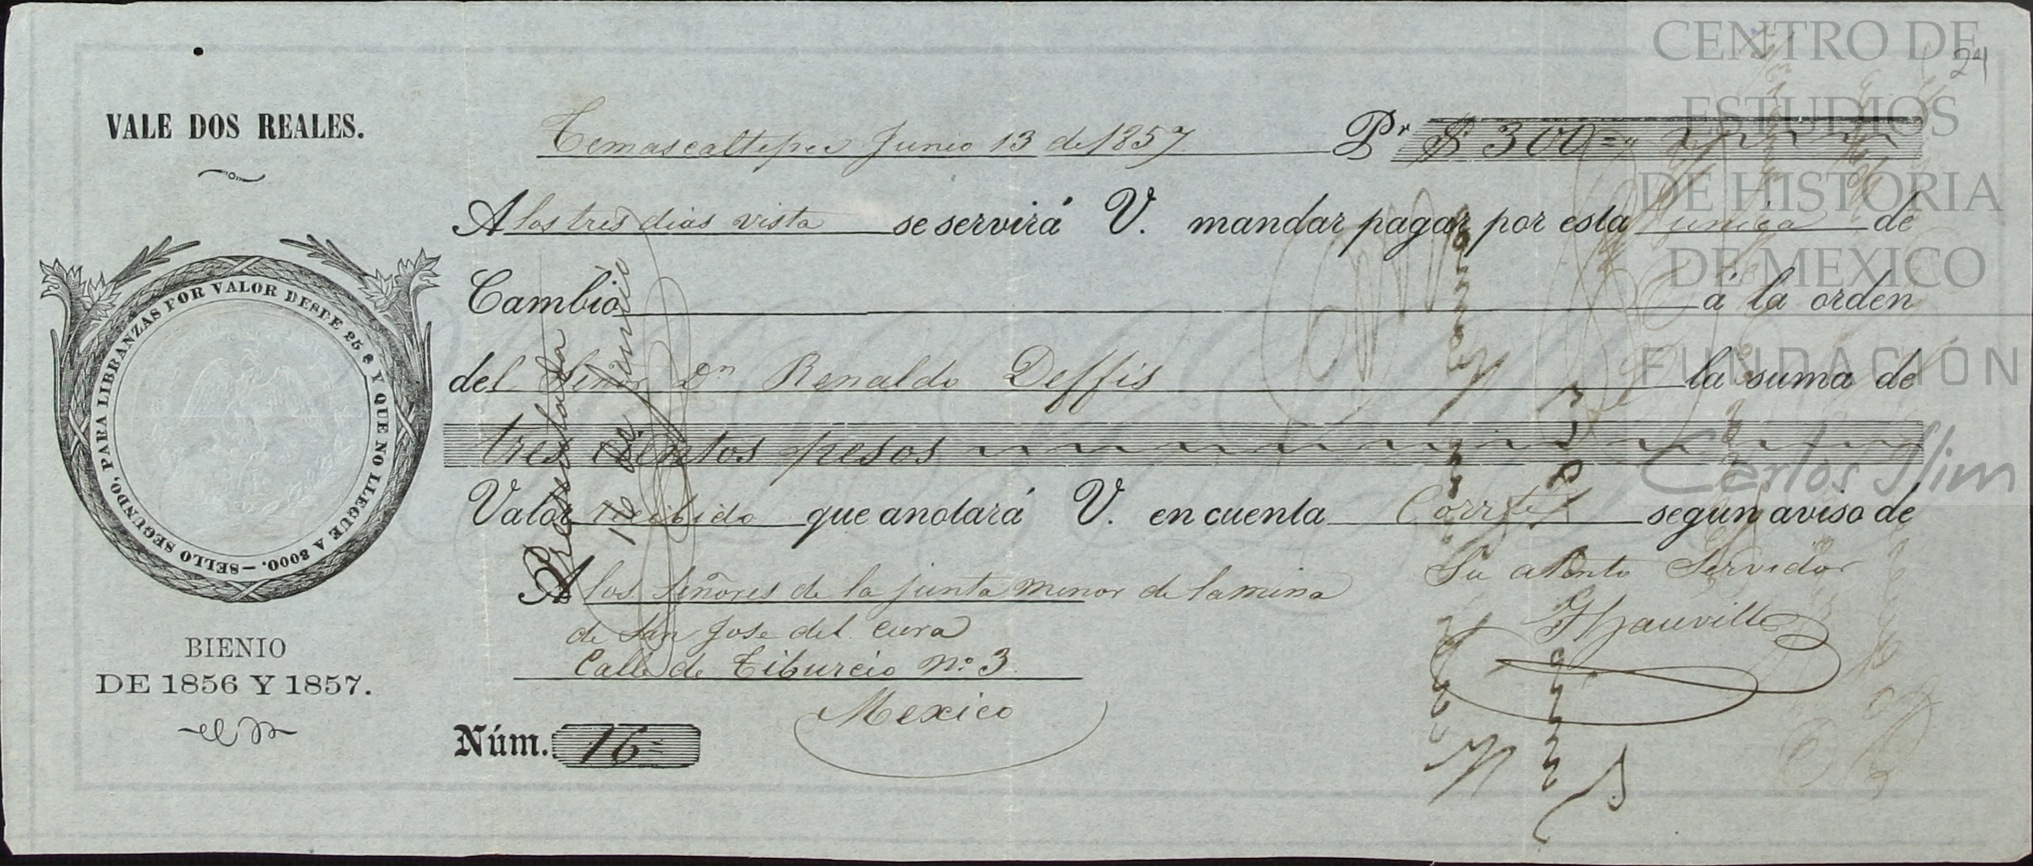 VALE DOS REALES.
PARA LIBRANZAS POR VALOR DESDE 25 $ Y QUE NO LLEGUE A 3000.—SELLO SEGUNDO,
BIENIO
DE 1856 Y 1857.
24
Temascaltepec Junio 13 de 1857 Pr $ 300=
A los tres dias vista se servirá V. mandar pagar por esta unica de
Cambio á la orden
del Señor Dn Renaldo Deffis la suma de
tres cientos pesos
Valor recibido que anotará V. en cuenta Corrte según aviso de
Su atento Servidor
A los Señores de la junta menor de la mina
de San Jose del cura
Calle de Tiburcio No. 3.
Mexico
Núm. 16=
Presentada
16 de Junio
CENTRO DE
ESTUDIOS
DE HISTORIA
DE MEXICO
FUNDACIÓN
Carlos Slim